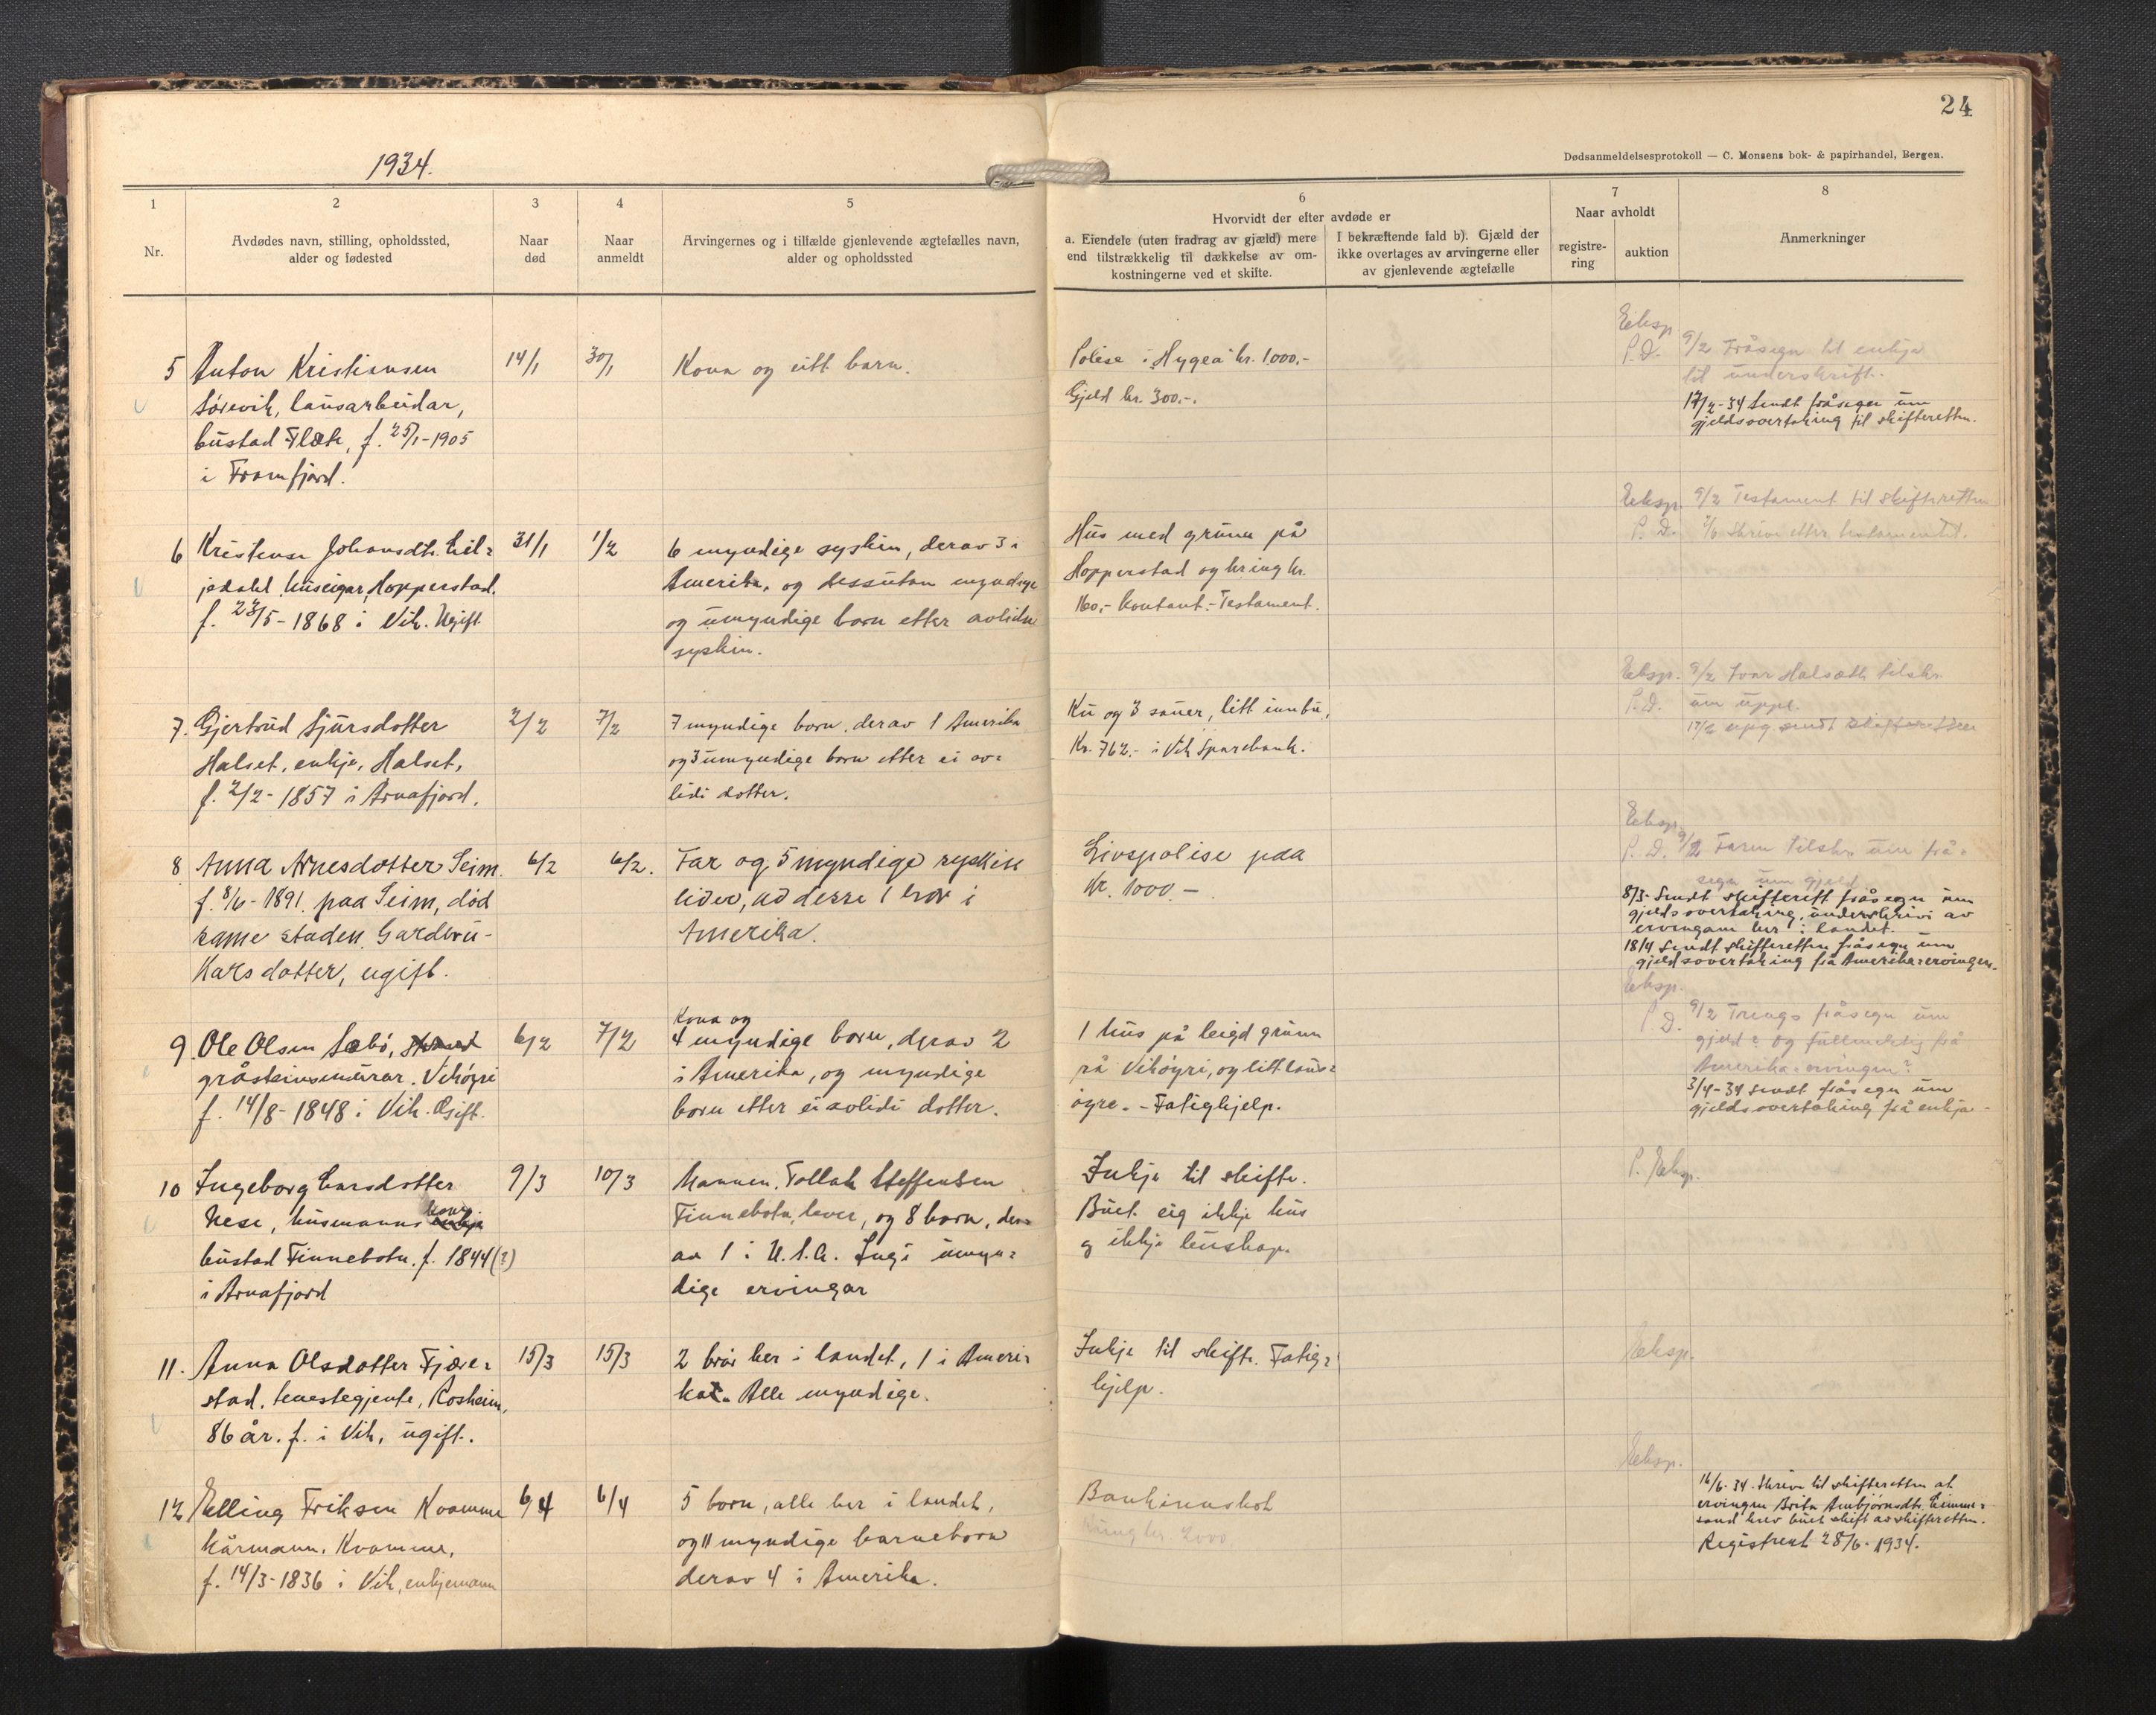 24
Dødsanmeldelsesprotokoll — C. Monsens bok- & papirhandel, Bergen.
1934.
1
Nr.
2
Avdødes navn, stilling, opholdssted,
alder og fødested
3
Naar
død
4
Naar
anmeldt
5
Arvingernes og i tilfælde gjenlevende ægtefælles navn,
alder og opholdssted
6
Hvorvidt der efter avdøde er
a. Eiendele (uten fradrag av gjæld) mere
end tilstrækkelig til dækkelse av om-
kostningerne ved et skifte.
I bekræftende fald b). Gjæld der
ikke overtages av arvingerne eller
av gjenlevende ægtefælle
7
Naar avholdt
registre-
ring
auktion
8
Anmerkninger
5 Anton Kristiansen
Sørevik, lausarbeidar,
bustad Flæte, f. 25/1-1905
i Framfjord.
14/1
30/1
Kona og eitt barn.
Polise i "Hygea" kr. 1000,-
Gjeld kr. 300.-.
Eksp.
P.D.
9/2 Fråsegn til enkja
til underskrift.
17/2-34 Sendt fråsegn um
gjeldsovertaking til skifteretten.
6 Kristense Johansdtr. Lil=
jedahl, huseigar, Hopperstad.
f. 23/5-1868 i Vik. Ugift
31/1
1/2
6 myndige syskin, derav 3 i
Amerika, og dessutan myndige
og umyndige born etter avlidne
syskin.
Hus med grunn på
Hopperstad og kring kr.
160,- kontant.- Testament.
Eksp.
P.D.
9/2 Testament til skifteretten
skriv etter testamentet.
7. Gjertrud Sjursdotter
Halset, enkje, Halset,
f. 2/2-1857 i Arnafjord.
2/2
7/2
7 myndige born, derav 1 Amerika
og 3 umyndige born etter ei av=
lidi dotter.
Ku og 3 sauer, litt innbu,
Kr. 762.- i Vik Sparebank.
Eksp.
P.D.
9/2 Ivar Halsæth tilskr.
um uppl.
17/2 upg sendt skifteretten
8 Anna Arnesdotter Seim.
f. 8/6-1891. paa Seim, død
same staden. Gardbru-
karsdotter, ugift.
6/2
6/2.
Far og 5 myndige syskin
liver, ad desse 1 bror i
Amerika.
Livspolise paa
Kr. 1000 -
Eksp.
P.D.
9/2 Faren tilskr. um frå=
segn um gjeld
8/3- Sendt skifterett fråsegn um
gjeldsovertaking, underskrivi av
ervingane her i landet.
18/4 Sendt skifteretten fråsegn um
gjeldsovertaking frå Amerika=ervingen.
9. Ole Olsen Sæbø,
gråsteinsmurar. Vikøyri
f. 14/8-1848 i Vik. Gift.
6/2
7/2
Kona og
4 myndige born, derav 2
i Amerika, og myndige
born etter ei avlidi dotter.
1 hus på leigd grunn
på Vikøyri, og litt laus=
øyre. - Fatighjelp.
Eksp.
P.D.
9/2 Trengs fråsegn um
gjeld? og fullmakt frå
Amerika=ervingen?
3/4-34 Sendt fråsegn um
gjeldsovertaking frå enkja -
10 Ingeborg Larsdotter
Nese, husmanns kone
bustad Finnebotn. f. 1844(?)
i Arnafjord
9/3
10/3
Mannen. Tollak Steffensen
Finnebotn, lever, og 8 born, der=
av 1 i U.S.A. Ingi umyn=
dige ervingar
Inkje til skifte.
Buet eig ikkje hus
og ikkje buskap.
P. Eksp.
11. Anna Olsdotter Fjære=
stad, tenestegjente, Rosheim,
86 år. f. i Vik, ugift.
15/3
15/3
2 brør her i landet, 1 i Ameri=
ka. Alle myndige.
Inkje til skifte. Fatig=
hjelp.
Eksp.
12 Elling Eriksen Kvamme
kårmann, Kvamme,
f. 14/3-1836 i Vik, enkjemann
6/4
6/4
5 born, alle her i landet,
og 11 myndige barneborn
derav 4 i Amerika.
Bankinnskot
kring kr. 2000
Eksp.
16/6-34. Skreiv til skifteretten at
ervingen Brita Ambjørnsdtr. Limme=
sand krev buet skift av skifteretten.
Registrert 28/6-1934.